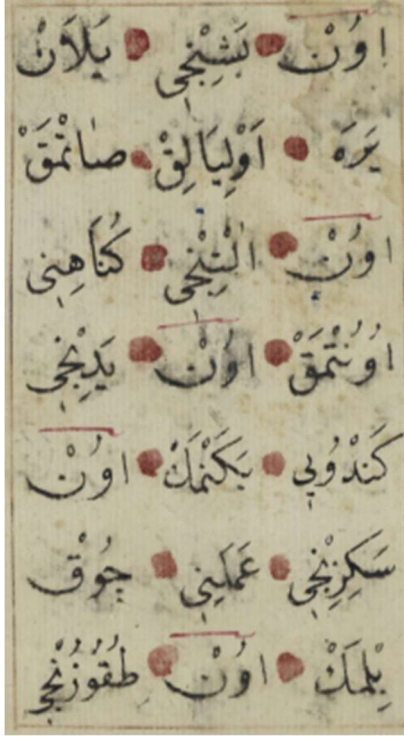 اوُنْ بَشِنْجِی يَلاَنْ
يَرَهْ اَوْلِيَالِقْ صَاتْمَقْ
اوُنْ اَلْتِنْجِی كُنَاهِنِی
اوُنُتْمَقْ اوُنْ يَدِنْجِی
كَنْدُويِی بَكَنْمَكْ اوُنْ
سَكِزِنْجِی عَمَلِينِی چُوقْ
بِلْمَكْ اوُنْ طُقُوزُنْجِی